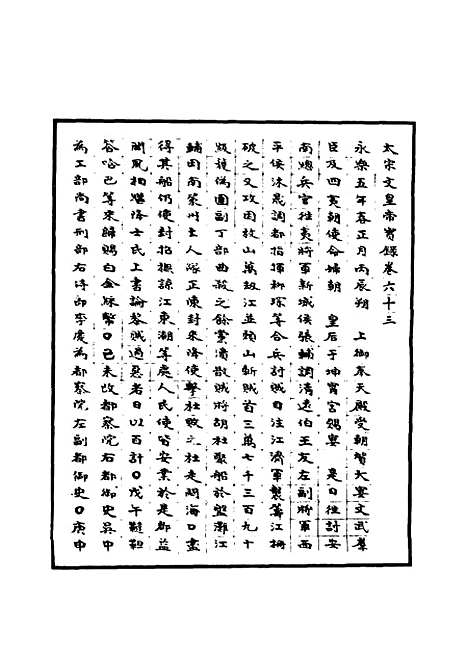 太宗文皇帝實錄卷六十三
永樂五年春正月丙辰朔　上御奉天殿受朝賀大宴文武羣
臣及四夷朝使命婦朝　皇后于坤寧宮賜宴　是日徃討安
南總兵官征夷將軍新城侯張輔調清遠伯王友左副將軍西
平侯沐晟調都指揮柳琮等合兵討賊自注江濟軍製籌江柵
破之又攻困枚山萬刼江並頭山斬賊首三萬七千三百九十
級䕶偽團副丁部曲敵之餘黨潰散賊將胡杜聚船於盤灘江
輔困南策州土人陳正陳封來降使擊杜敗之杜走悶海口盡
得其船仍使封招撫諒江東湖等處人民使皆安業於是郡益
聞風相繼降士民上書論黎賊過惡者日以百計○戊午韃靼
答哈巴等來歸賜白金綵幣○己未改都察院右都御史吳中
為工部尚書刑部右侍郎李慶為都察院左副都御史○庚申